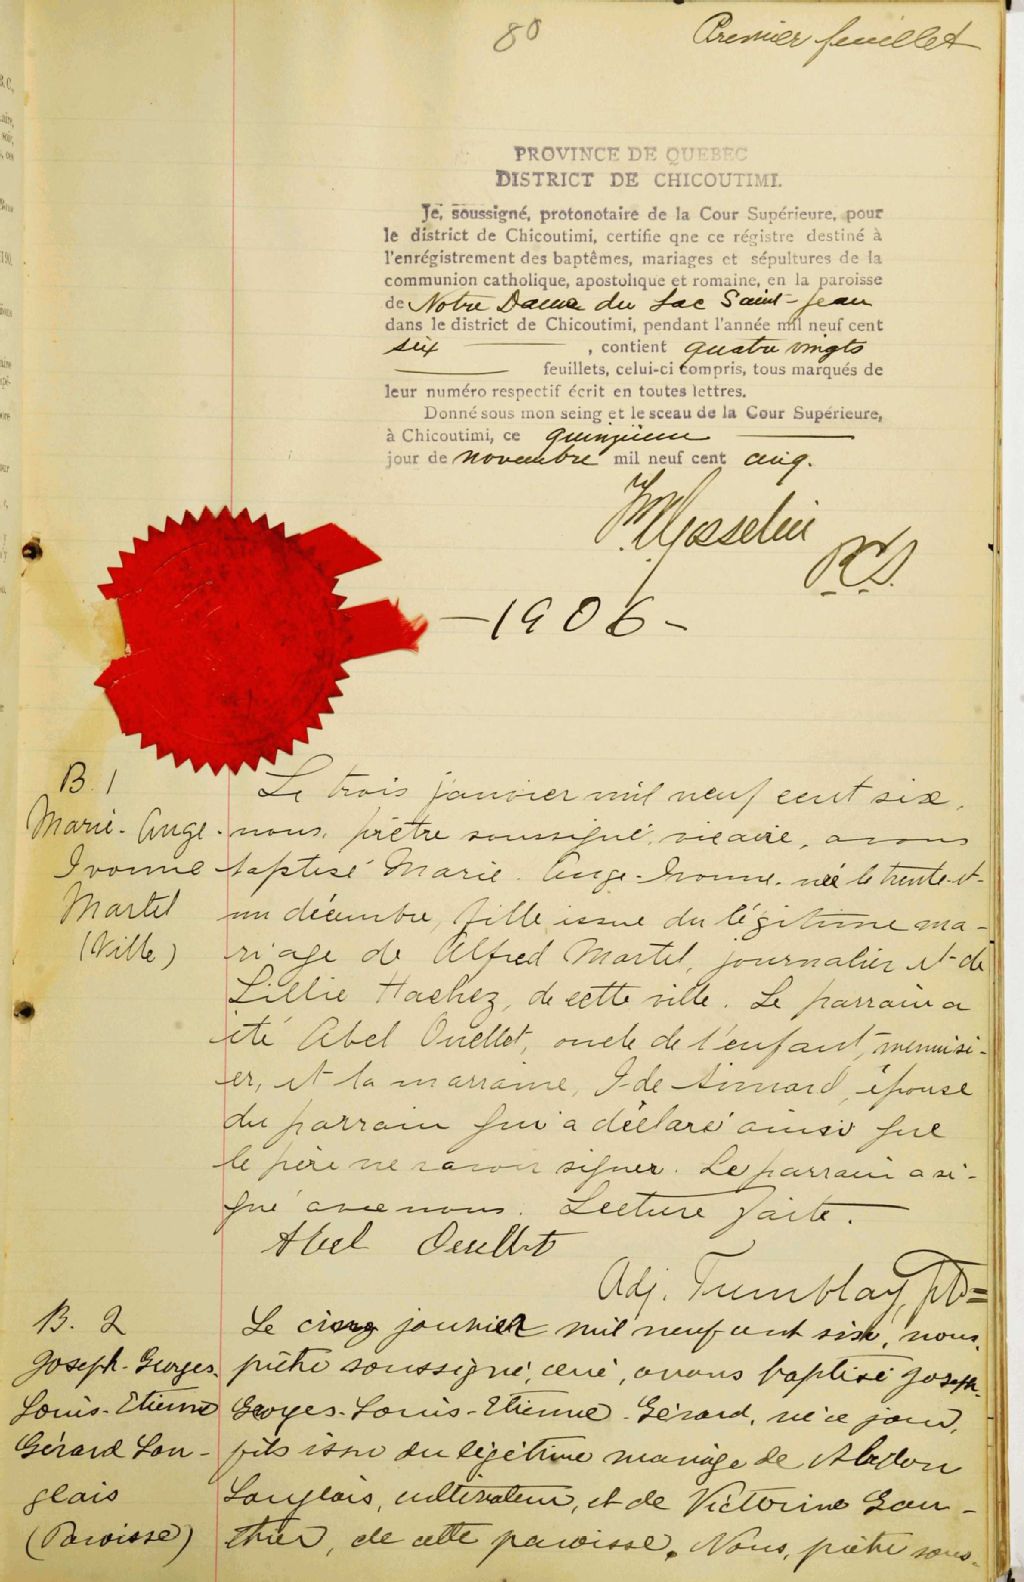 80
Premier feuillet
PROVINCE DE QUEBEC
DISTRICT DE CHICOUTIMI.
Je, soussigné, protonotaire de la Cour Supérieure, pour
le district de Chicoutimi, certifie qne ce régistre destiné à
l'enrégistrement des baptêmes, mariages et sépultures de la
communion catholique, apostolique et romaine, en la paroisse
de Notre Dame du Lac Saint-Jean
dans le district de Chicoutimi, pendant l'année mil neuf cent
six , contient quatre vingts
feuillets, celui-ci compris, tous marqués de
leur numéro respectif écrit en toutes lettres.
Donné sous mon seing et le sceau de la Cour Supérieure,
à Chicoutimi, ce quinzième
jour de novembre mil neuf cent cinq.
Gosselin
P.C.S.
-1906-
B. 1
Marie-Ange-
Ivonne
Martel
(Ville)
Le trois janvier mil neuf cent six,
nous, prêtre soussigné, vicaire, avons
baptisé Marie-Ange-Ivonne, née le trente-et-
un décembre, fille issue du légitime ma-
riage de Alfred Martel, journalier et de
Lillie Hachez, de cette ville. Le parrain a
été Abel Ouellet, oncle de l'enfant, menuisi-
er, et la marraine, Ida Simard, épouse
du parrain qui a déclaré ainsi que
le père ne savoir signer. Le parrain a si-
gné avec nous. Lecture faite.
Abel Ouellet
Adj. Tremblay, ptre
B. 2
Joseph-Georges-
Louis-Etienne
Gérard Lan-
glais
(Paroisse)
Le cinq janvier mil neuf cent six, nous,
prêtre soussigné, curé, avons baptisé Joseph-
Georges-Louis-Etienne-Gérard, né ce jour,
fils issu du légitime mariage de Abdon
Langlais, cultivateur, et de Victorine Gau-
thier, de cette paroisse. Nous, prêtre sous-